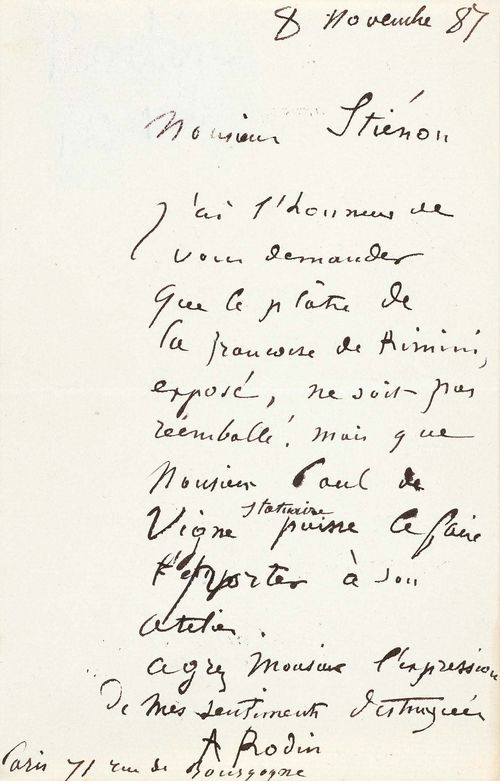 8 Novembre 87
Monsieur Stiénon
j'ai l'honneur de
vous demander
que le plâtre de
la francoise de Rimini,
exposé, ne soit pas
réemballé. mais que
Monsieur Paul de
Vigne statuaire puisse le faire
porter à son
atelier.
agrez Monsieur l'expression
De mes sentiments distingués
A Rodin
Paris 71 rue de Bourgogne